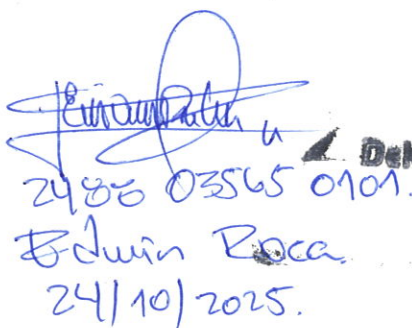 2488 03565 0101.
Edwin Roca.
24/10/2025.